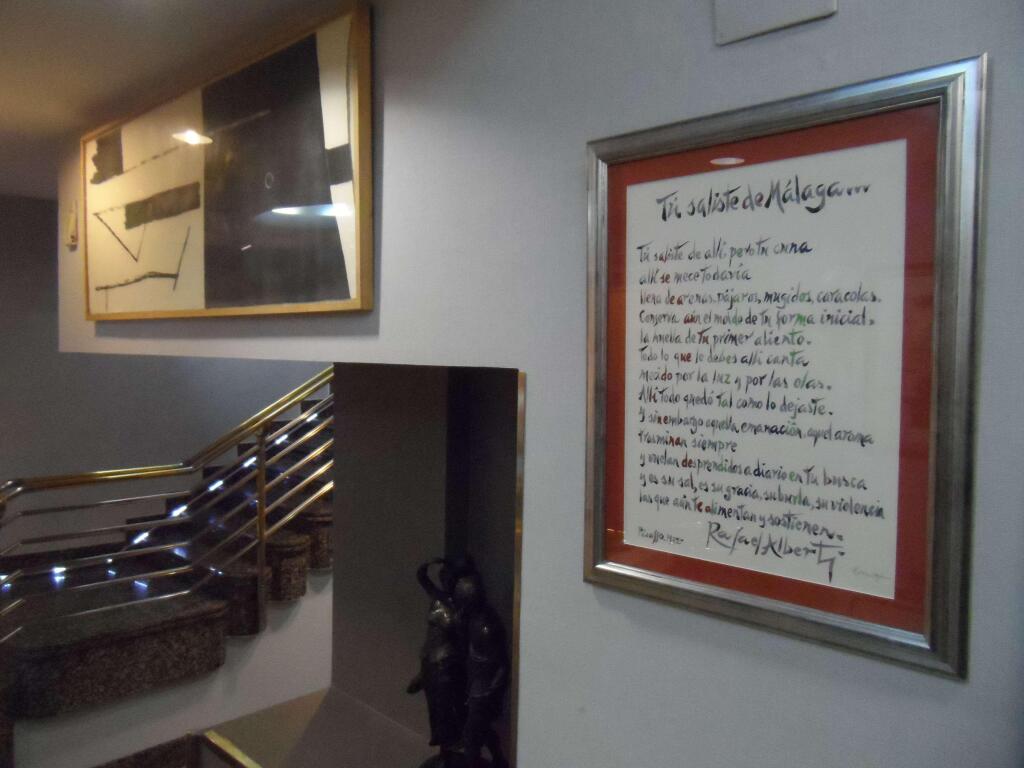 Tú saliste de Málaga...
Tú saliste de allí, pero tu cuna
allí se mece todavía
llena de arenas, pájaros, mugidos, caracolas.
Conserva aún el molde de tu forma inicial,
la huella de tu primer aliento.
Todo lo que le debes allí canta
mecido por la luz y por las olas.
Allí todo quedó tal como lo dejaste.
Y sin embargo aquella emanación, aquel aroma
trasminan siempre
y vuelan desprendidos a diario en tu busca
y es su sal, es su gracia, su burla, su violencia
las que aún te alimentan y sostienen.
Rafael Alberti
Picasso,